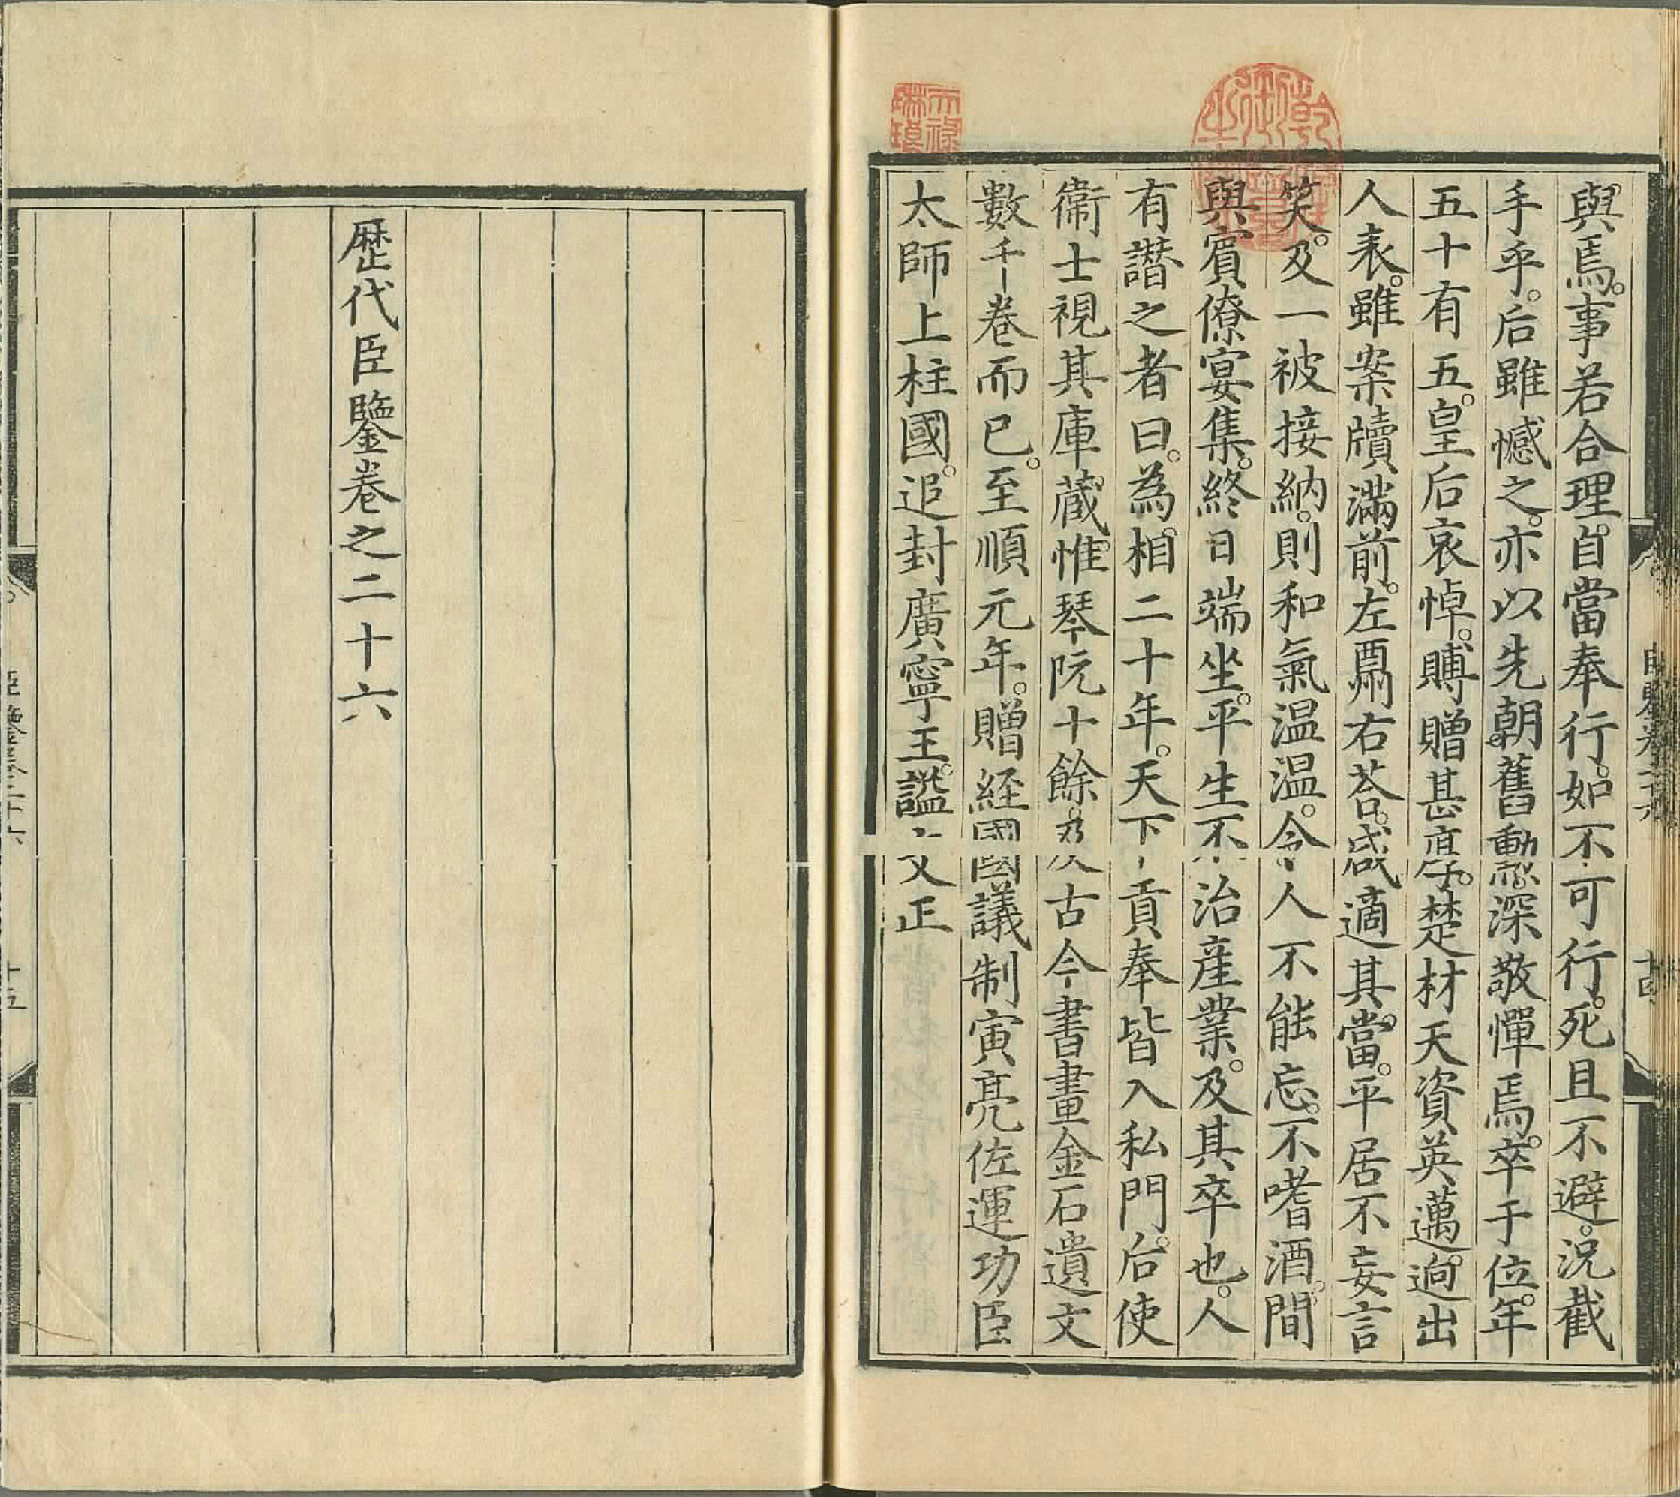 與焉。事若合理。自當奉行。如不可行。死且不避。況截
手乎。后雖憾之。亦以先朝舊勳深敬憚焉。卒于位。年
五十有五。皇后哀悼。賻贈甚厚。楚材天資英邁。迥出
人表。雖案牘滿前。左酬右荅。咸適其當。平居不妄言
笑。及一被接納。則和氣温温。令人不能忘。不嗜酒。間
與賓僚宴集。終日端坐。平生不治產業。及其卒也。人
有譖之者曰。為相二十年。天下貢奉皆入私門。后使
衞士視其庫藏。惟琴阮十餘。及古今書畫金石遺文
數千卷而已。至順元年。贈経國議制寅亮佐運功臣
太師上柱國。追封廣寧王。謚文正
歷代臣鑒卷之二十六
臣鑒卷二十六
十五